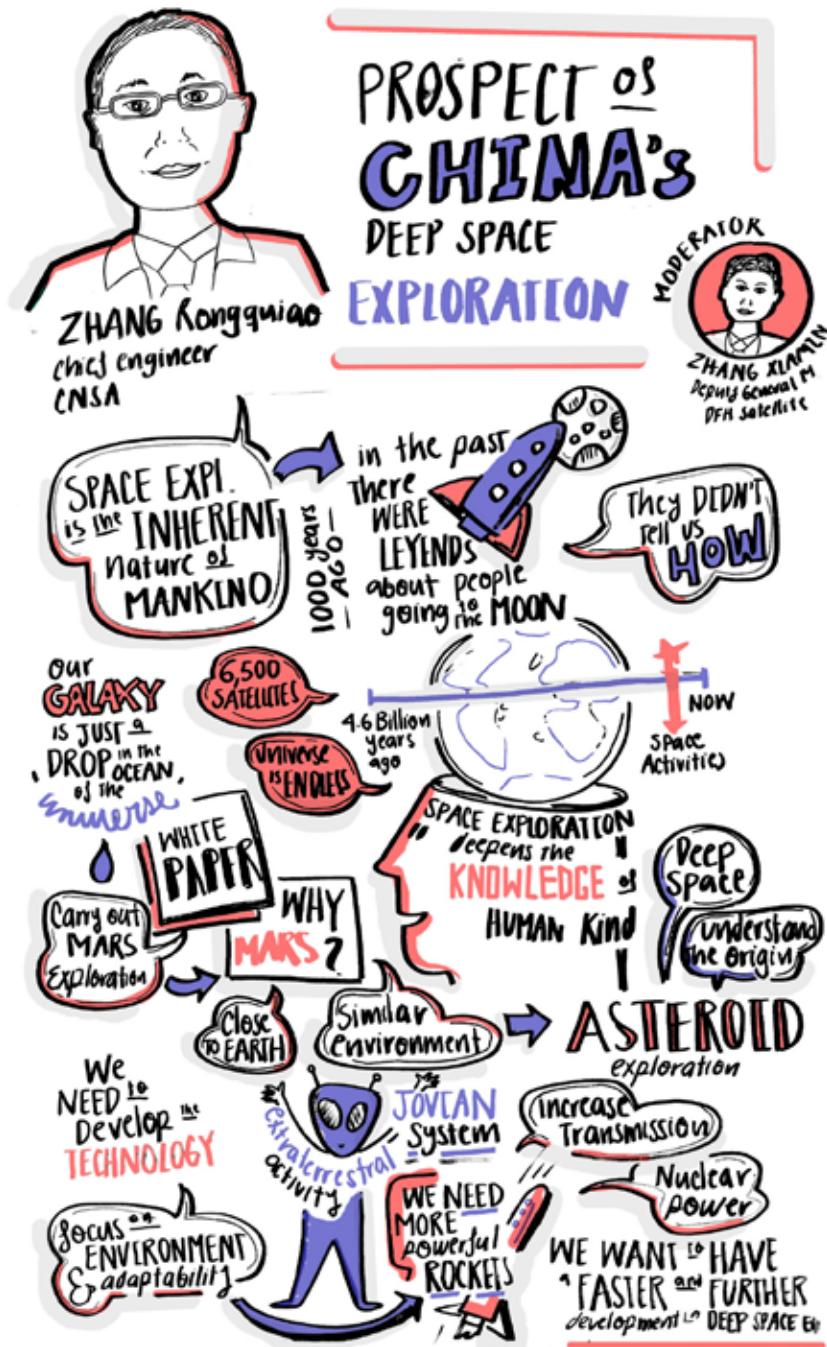 PROSPECT of
CHINA's
DEEP SPACE
EXPLORATION
ZHANG Rongquiao
chief engineer
CNSA
MODERATOR
ZHANG XIAMIN
Deputy General M
DFH Satellite
SPACE EXPL.
is the INHERENT
nature of
MANKIND
1000 years
AGO
in the past
There
WERE
LEYENDS
about people
going to the MOON
They DIDN'T
Tell us
HOW
our
GALAXY
IS JUST a
DROP in the
OCEAN
of the
universe
6,500
SATELLITES
Universe
is ENDLESS
4.6 Billion
years
ago
NOW
Space
Activities
WHITE
PAPER
Carry out
MARS
Exploration
WHY
MARS?
SPACE EXPLORATION
deepens the
KNOWLEDGE of
HUMAN Kind
Deep
space
understand
the origin
Close
TO EARTH
Similar
environment
ASTEROID
exploration
We
NEED to
Develop the
TECHNOLOGY
extraterrestral
activity
JOVIAN
System
Increase
Transmission
Nuclear
power
focus on
ENVIRONMENT
& adaptability
WE NEED
MORE
powerful
ROCKETS
WE WANT to HAVE
a FASTER and FURTHER
development in DEEP SPACE